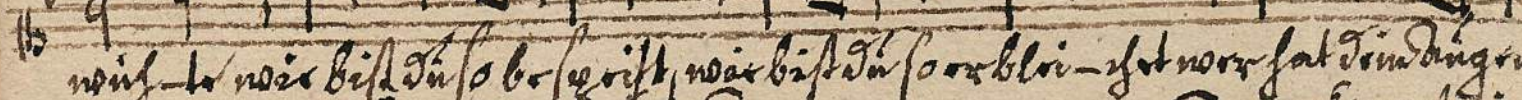 wich-te wie bist du so bespeit, wie bist du so erblei-chet wer hat dein Augen